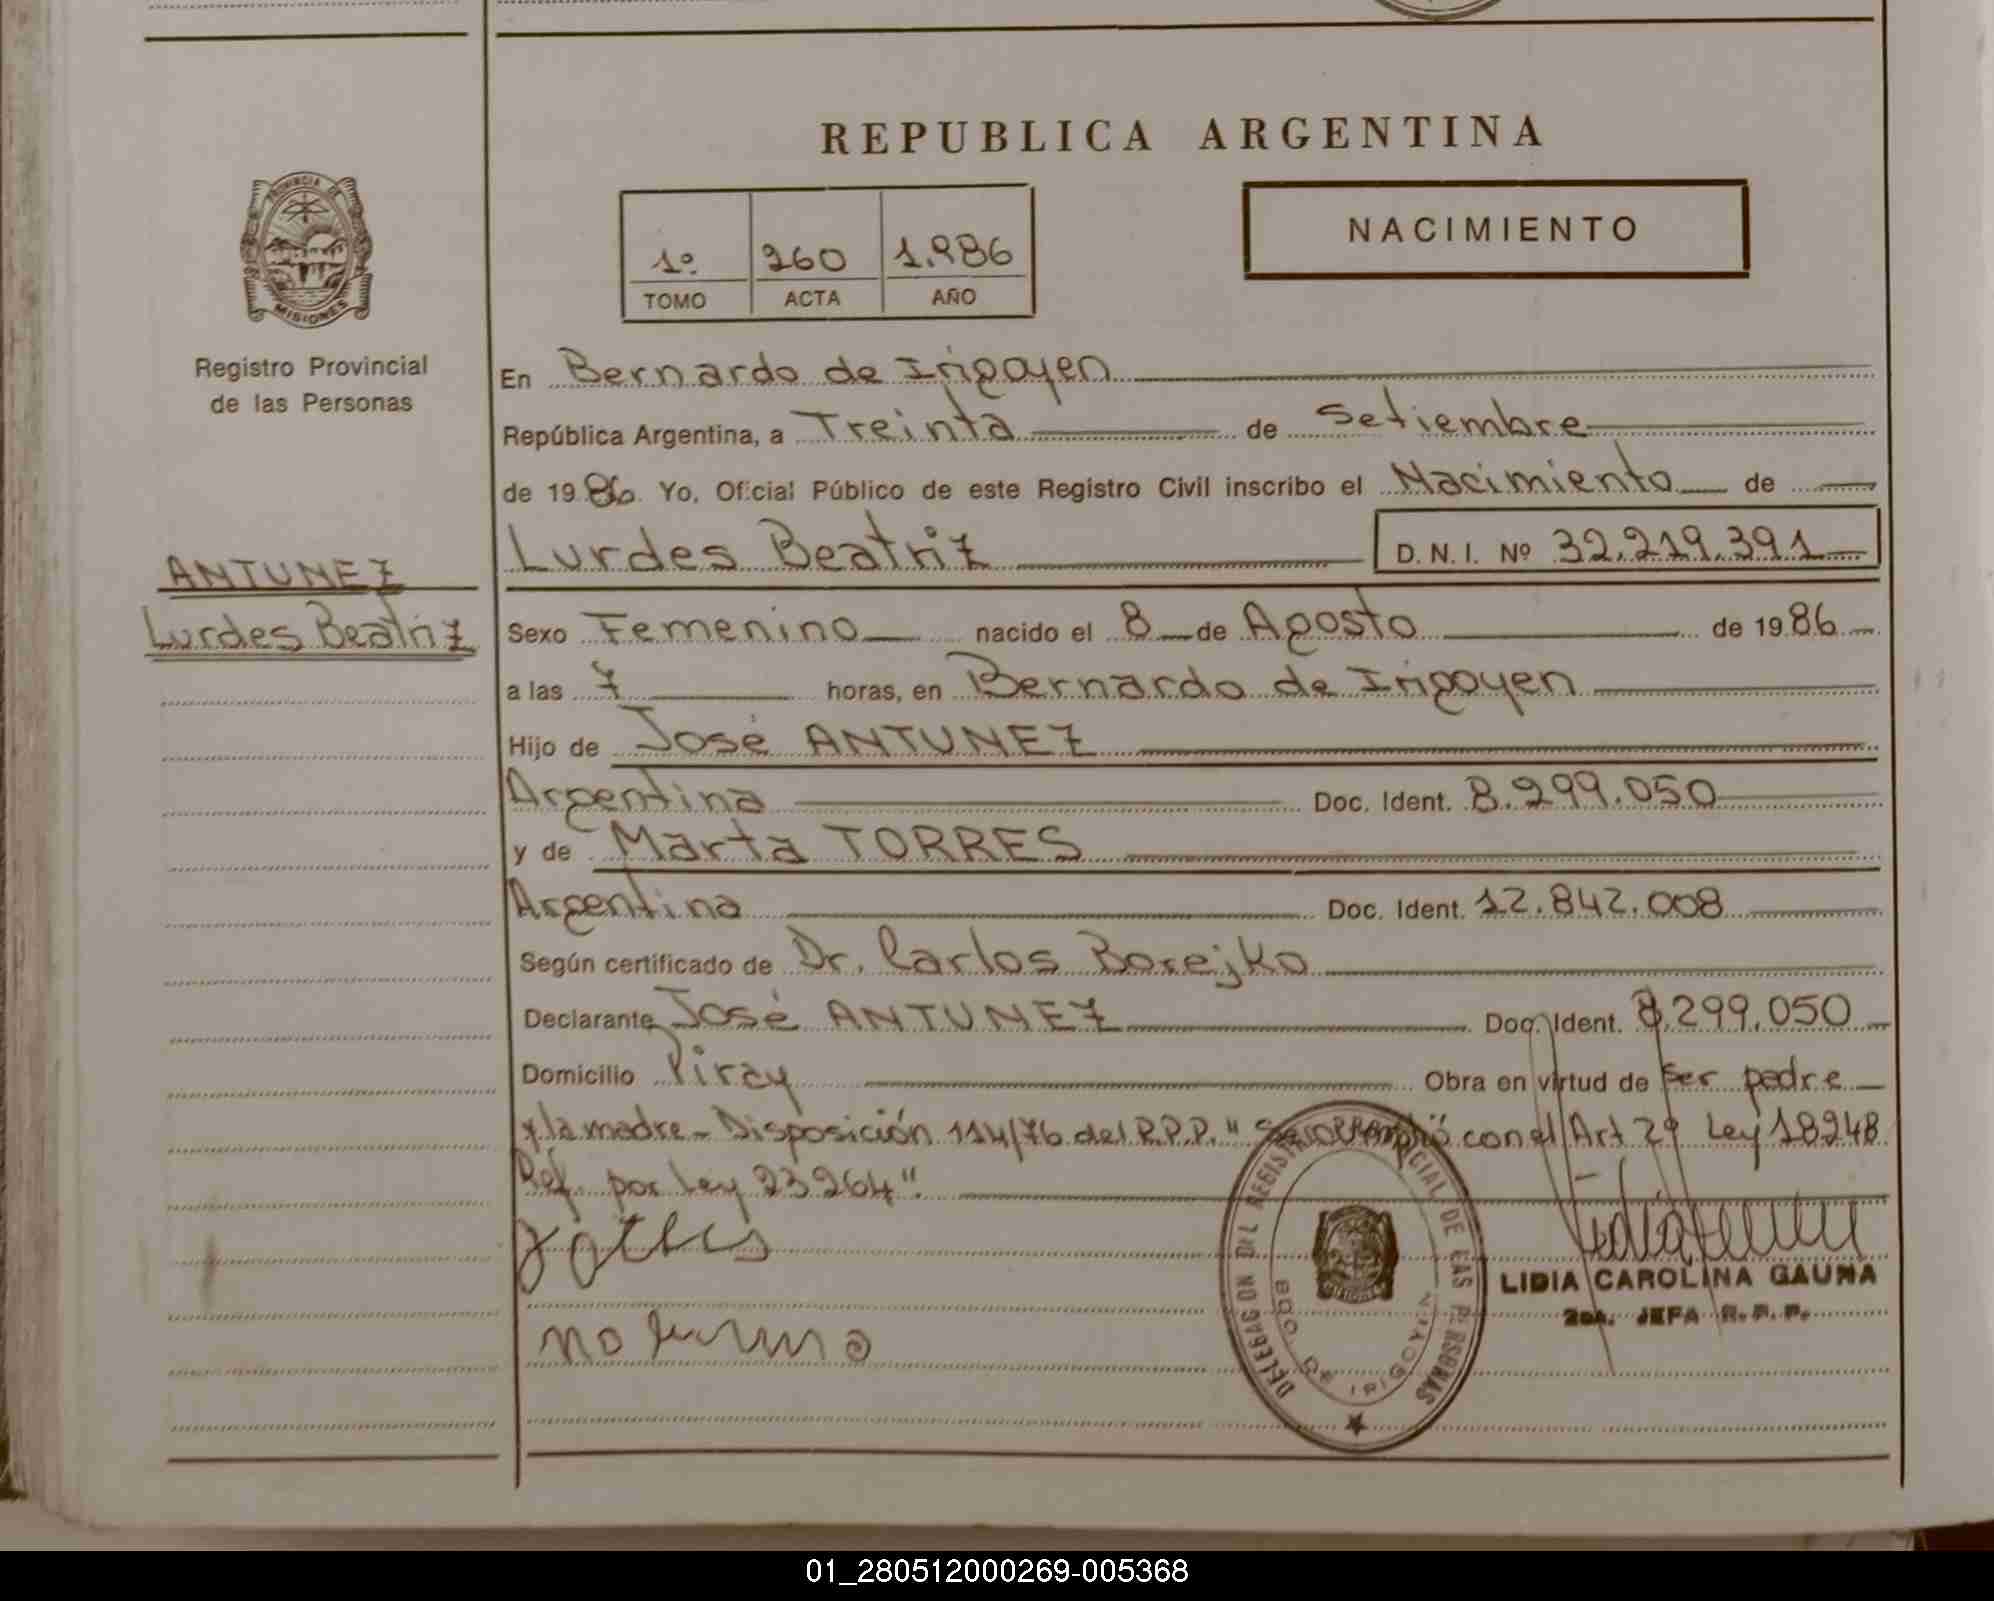 REPUBLICA ARGENTINA
PROVINCIA DE MISIONES
1º 260 1.986
TOMO ACTA AÑO
NACIMIENTO
Registro Provincial
de las Personas
En Bernardo de Irigoyen
República Argentina, a Treinta de Setiembre
de 1986 Yo, Oficial Público de este Registro Civil inscribo el Nacimiento de
Lurdes Beatriz D. N. I. Nº 32.219.391
ANTUNEZ
Lurdes Beatriz
Sexo Femenino nacido el 8 de Agosto de 1986
a las 7 horas, en Bernardo de Irigoyen
Hijo de José ANTUNEZ
Argentina Doc. Ident. 8.299.050
y de Marta TORRES
Argentina Doc. Ident. 12.842.008
Según certificado de Dr. Carlos Borejko
Declarante José ANTUNEZ Doc. Ident. 8.299.050
Domicilio Piray Obra en virtud de ser padre
y la madre - Disposición 114/76 del R.P.P. " con el Art 29 Ley 18248
Ref. por Ley 23264".
no firma
DELEGACION DEL REGISTRO PROVINCIAL DE LAS PERSONAS
BDO. DE IRIGOYEN
LIDIA CAROLINA GAUNA
2da. JEFA R. P. P.
01_280512000269-005368